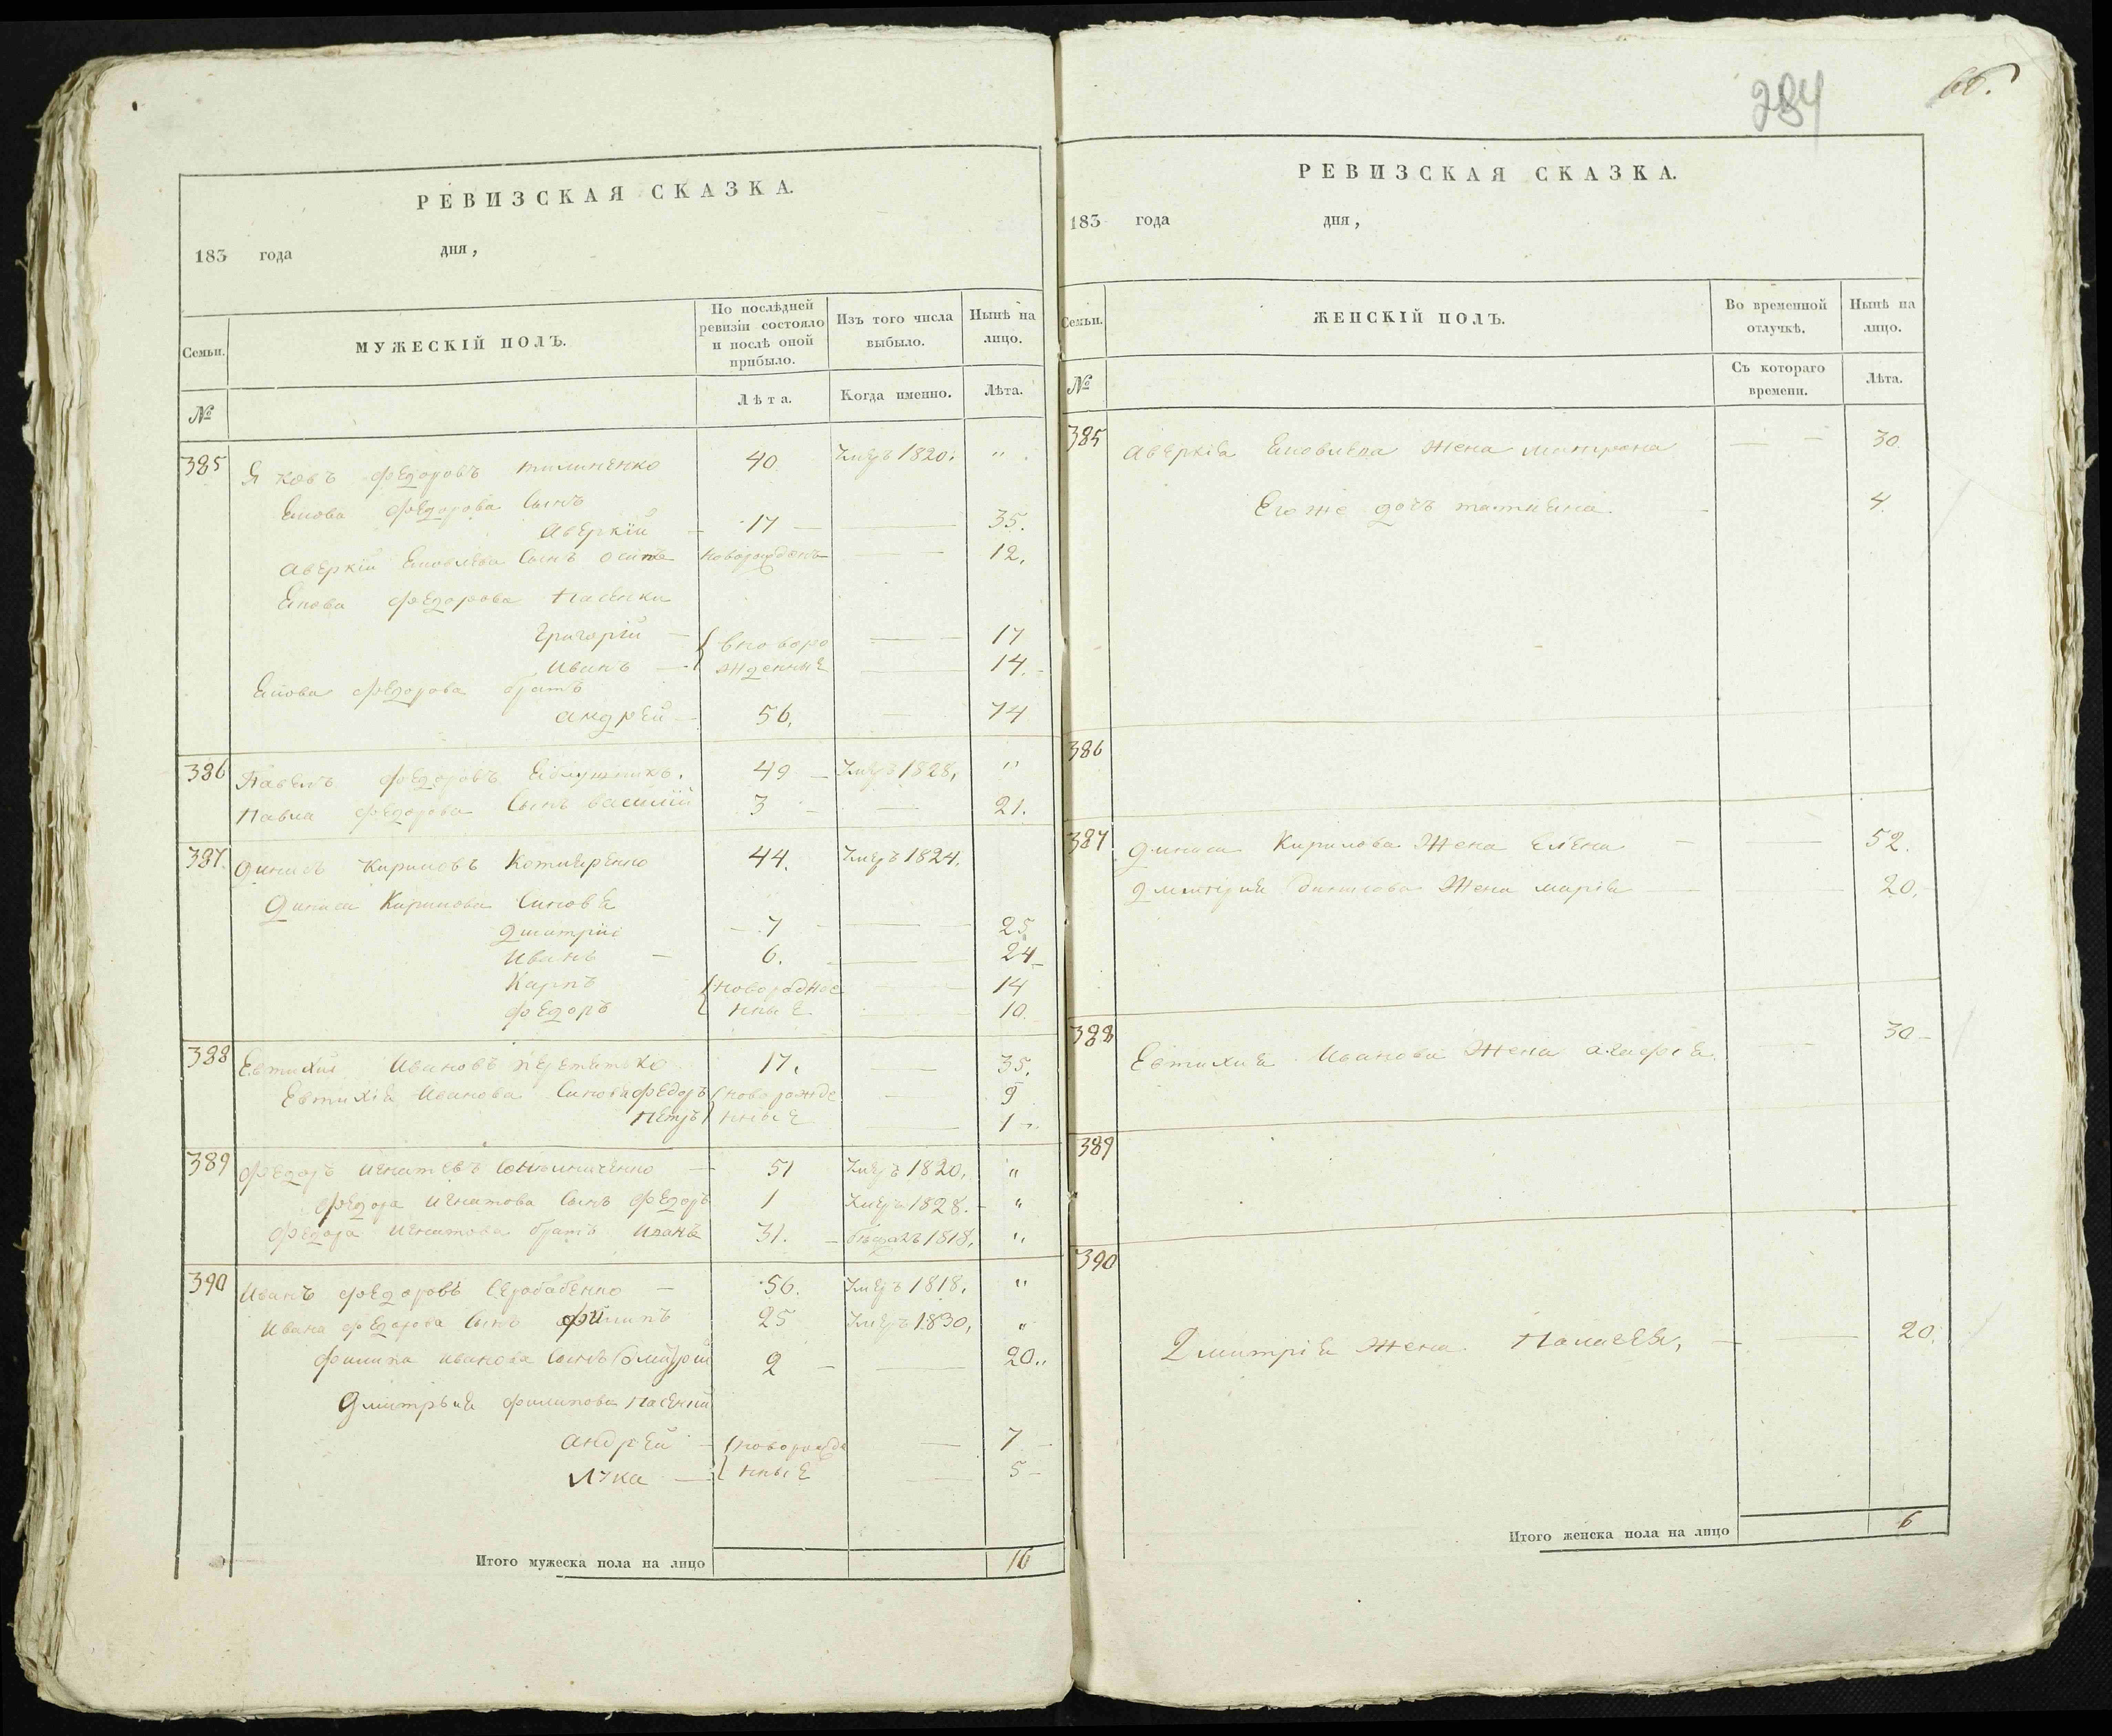 РЕВИЗСКАЯ СКАЗКА.
183 года дня,
Семьи. МУЖЕСКІЙ ПОЛЪ. По послѣдней ревизіи состояло и послѣ оной прибыло. Изъ того числа выбыло. Нынѣ на лицо.
№ Лѣта. Когда именно. Лѣта.
385 Яковъ Федоровъ 40 Умеръ 1820. "
Якова Федорова Сынъ
Аверкій 17 35.
Аверкія Яковлева Сынъ Осипъ 12.
Якова Федорова Пасенки
Григорій { вноворо 17
Иванъ жденные 14.
Якова Федорова братъ
Андрей 56. 74
386 Павелъ Федоровъ 49 Умеръ 1828, "
Павла Федорова Сынъ Василій 3 21.
387. Динисъ Кириловъ Котляренко 44. Умеръ 1824.
Диниса Кирилова Синовя
Дмитрій 7 25
Иванъ 6. 24
Карпъ 14
Федоръ нные 10.
388 Евтихій Ивановъ 17. 35.
Евтихія Иванова Синовя Федоръ { новорожде 9
Петръ нные 1
389 Федоръ Игнатьевъ 51 Умеръ 1820, "
Федора Игнатова Сынъ Федоръ 1 Умеръ 1828. "
Федора Игнатова братъ Иванъ 31. 1818, "
390 Иванъ Федоровъ Серобабенко 56. Умеръ 1818, "
Ивана Федорова Сынъ Филипъ 25 Умеръ 1830, "
Филипа Иванова Сынъ Дмитрій 2 20.
Дмитрія Филипова Пасенки
Андрей { новорожде 7
Лука нные 5
Итого мужеска пола на лицо 16
284
РЕВИЗСКАЯ СКАЗКА.
183 года дня,
Семьи. ЖЕНСКІЙ ПОЛЪ. Во временной отлучкѣ. Нынѣ на лицо.
№ Съ котораго времени. Лѣта.
385 Аверкія Яковлева Жена 30
Егоже дочь татияна. 4.
386
387 Диниса Кирилова Жена Елена 52.
Дмитрія Динисова Жена Марія 20.
388 Евтихія Иванова Жена Агафія 30
389
390
Дмитрія Жена Палагея, 20.
Итого женска пола на лицо 6